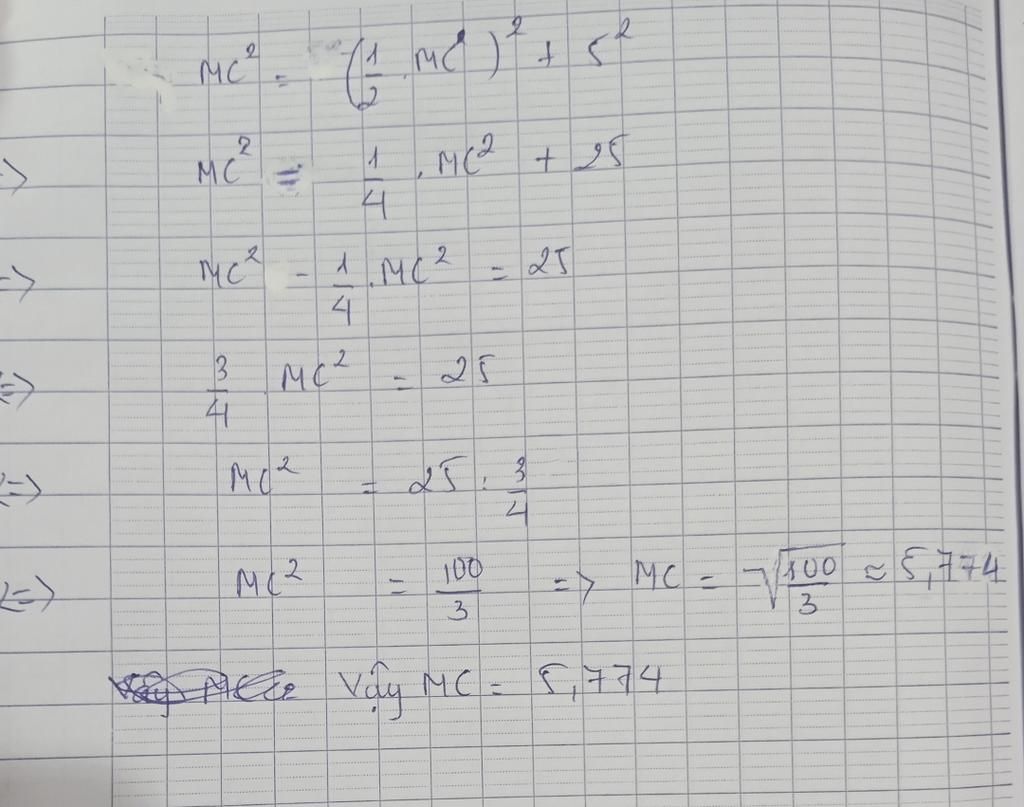 MC² = (1/2 . MC)² + 5²
=> MC² = 1/4 . MC² + 25
=> MC² - 1/4 . MC² = 25
<=> 3/4 MC² = 25
<=> MC² = 25 : 3/4
<=> MC² = 100/3 => MC = √(100/3) ≈ 5,774
Vậy MC = 5,774